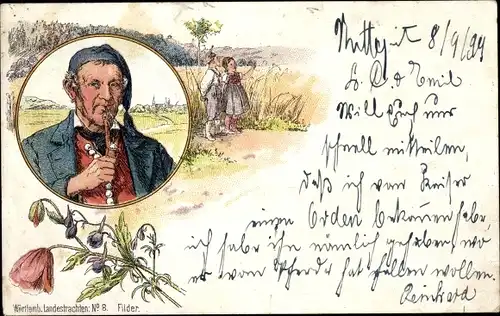 8/9/99
Emil
Will Euch nur
schnell mitteilen,
daß ich vom Kaiser
einen Orden bekommen habe,
ich habe ihn nämlich gehoben wo
er vom Pferde hat fallen wollen.
Reinhard
Württemb. Landestrachten: No 8. Filder.